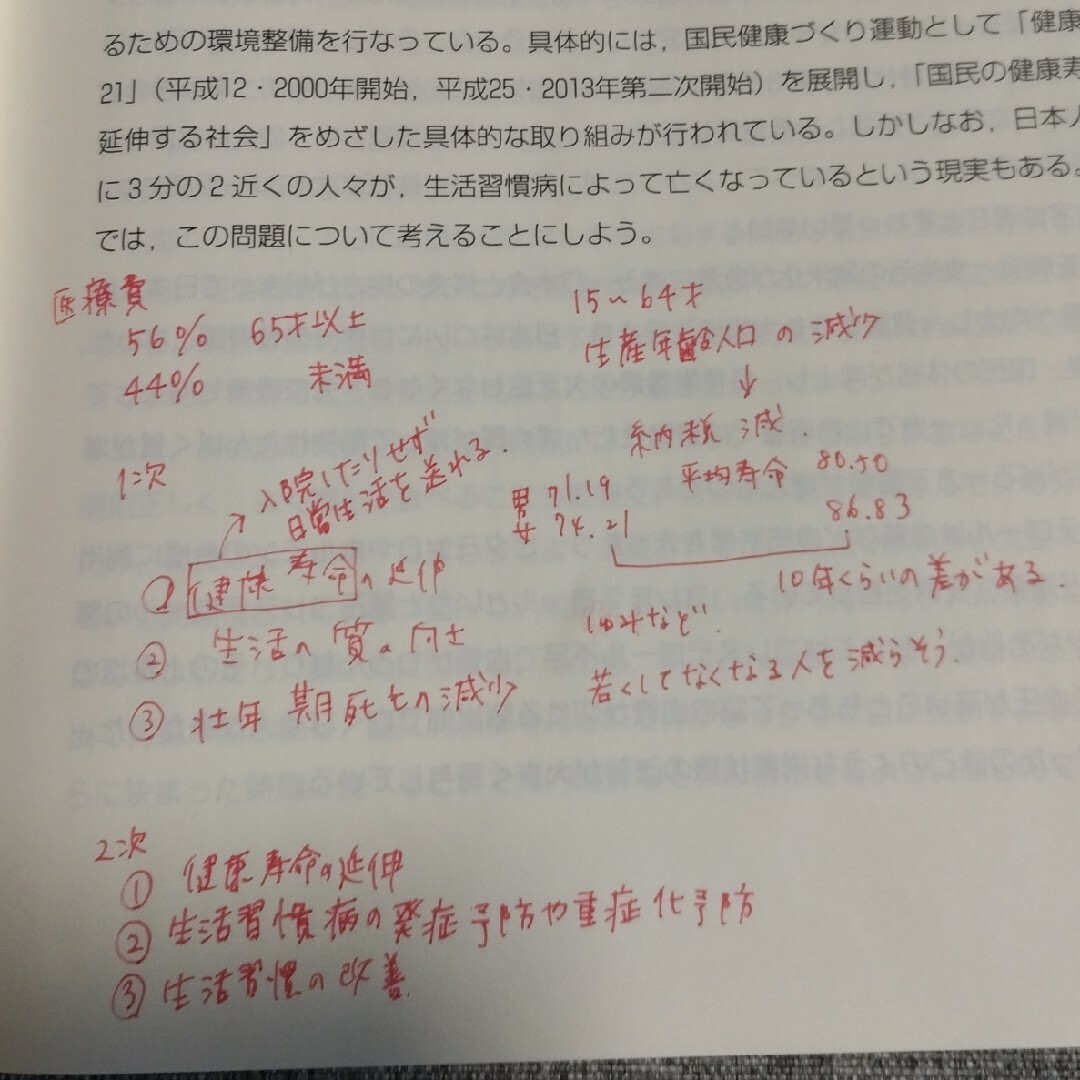 るための環境整備を行なっている。具体的には，国民健康づくり運動として「健康
21」（平成12・2000年開始，平成25・2013年第二次開始）を展開し，「国民の健康寿
延伸する社会」をめざした具体的な取り組みが行われている。しかしなお，日本人
に3分の2近くの人々が，生活習慣病によって亡くなっているという現実もある。
では，この問題について考えることにしよう。
医療費
56% 65才以上
44% 未満
15〜64才
生産年齢人口の減少
↓
納税 減
1次
入院したりせず
日常生活を送れる．
平均寿命
男 71.19 80.50
女 74.21 86.83
10年くらいの差がある．
① 健康寿命の延伸
② 生活の質の向上
③ 壮年期死亡の減少
など
若くしてなくなる人を減らそう．
2次
① 健康寿命の延伸
② 生活習慣病の発症予防や重症化予防
③ 生活習慣の改善．